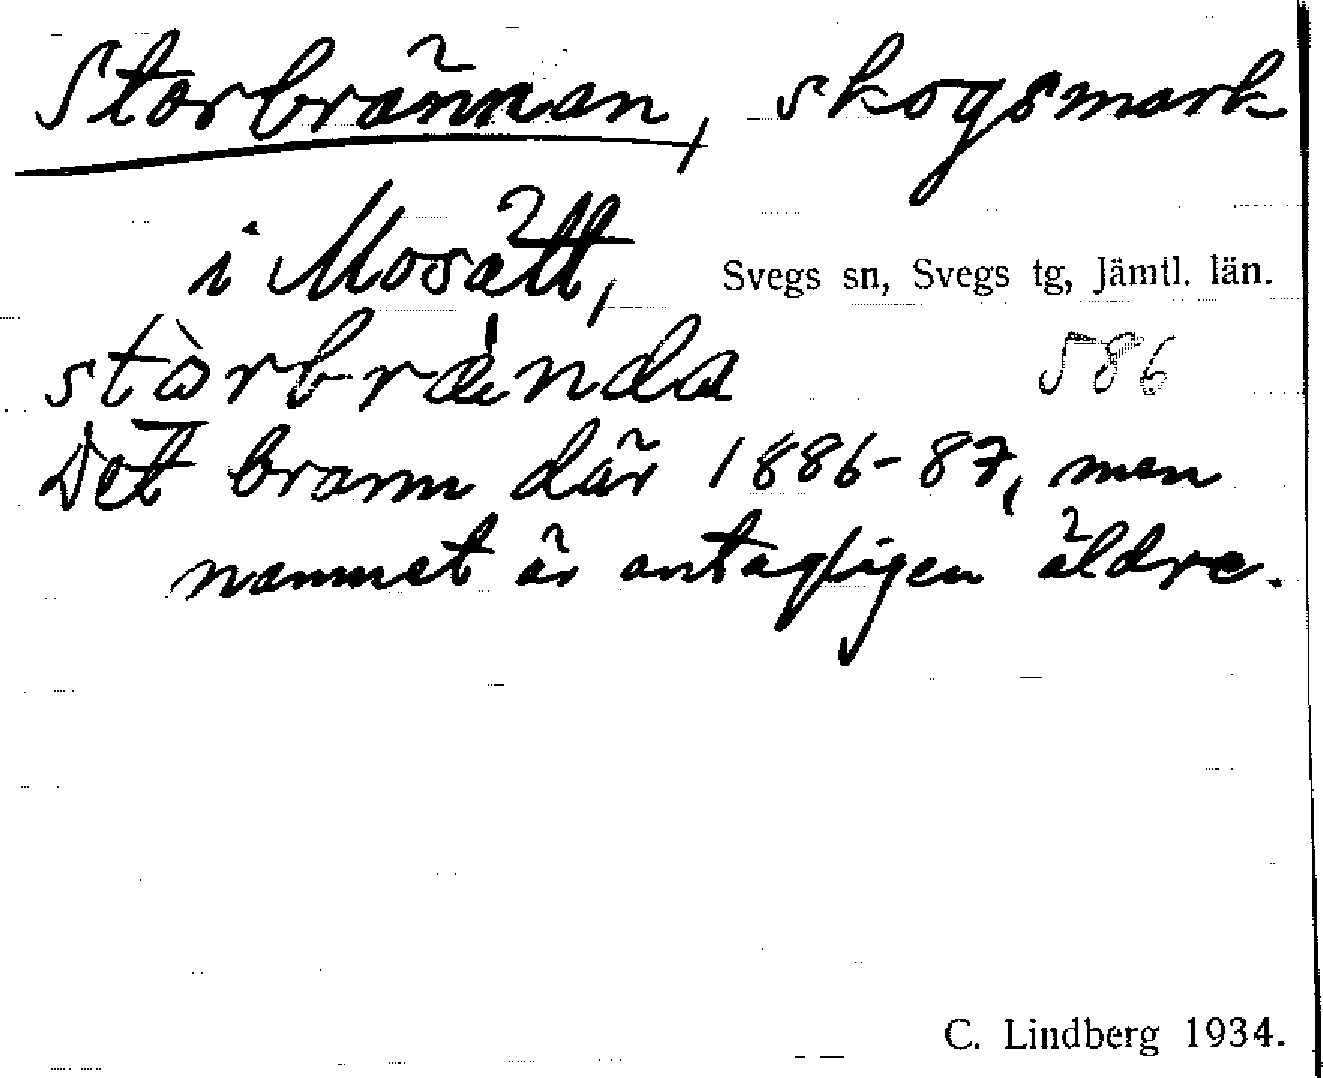 Storbrännan, skogsmark
i Mosätt, Svegs sn, Svegs tg, Jämtl. län.
stòrbrænda 586
Det brann där 1886-87, men
namnet är antagligen äldre.
C. Lindberg 1934.